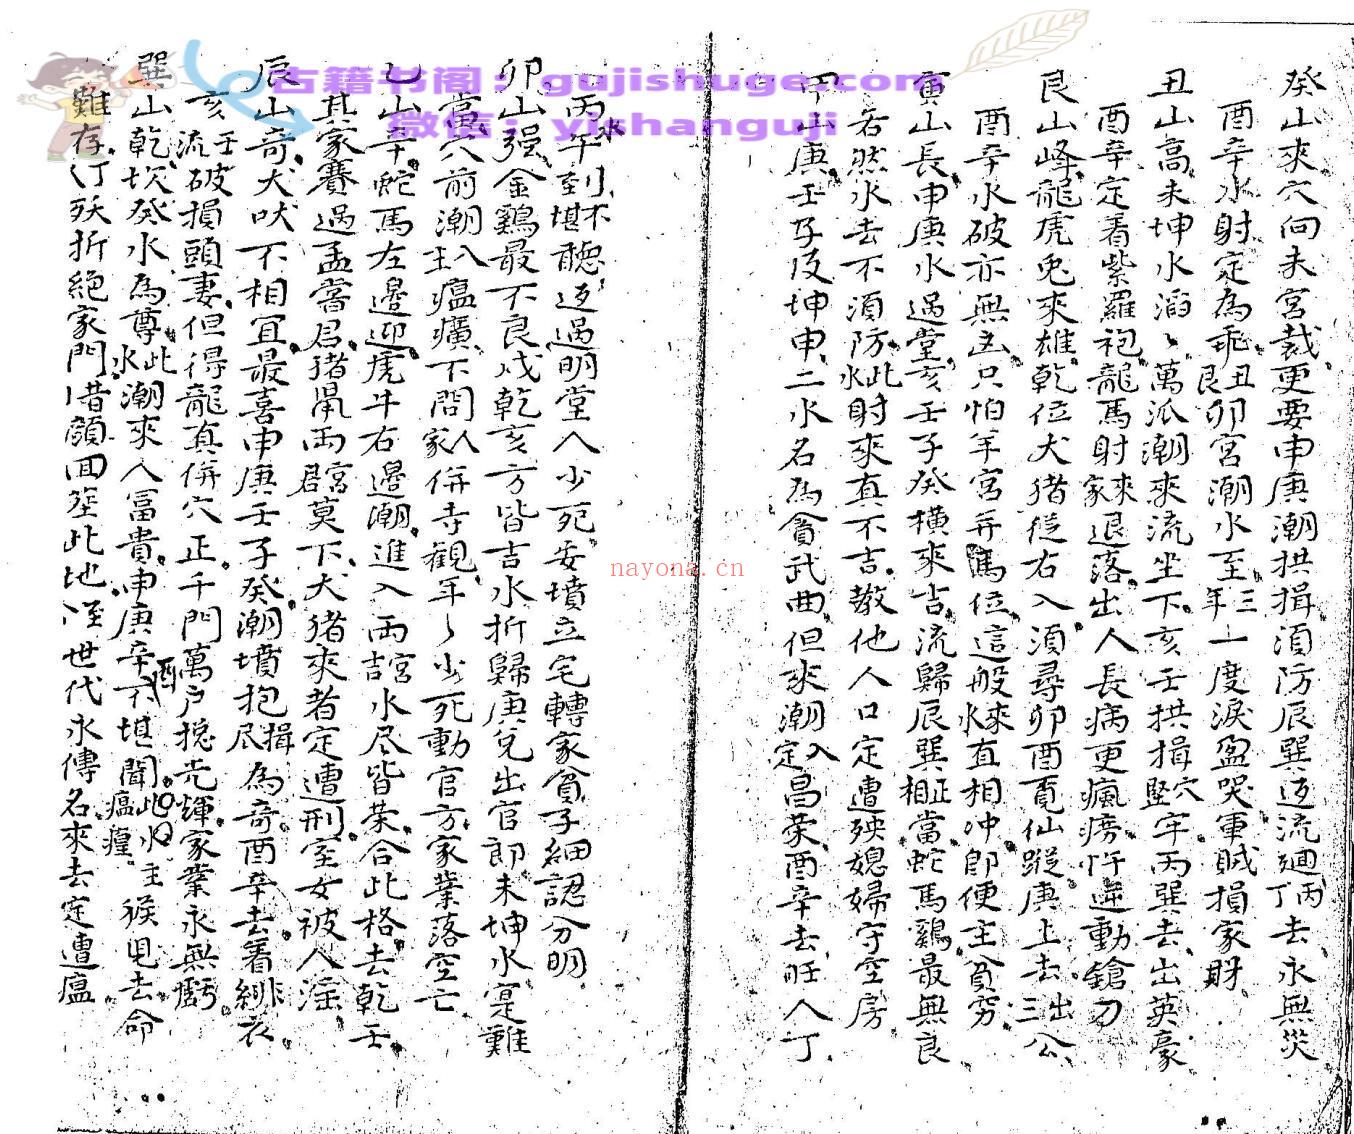 癸山來穴向未宮裁更要申庚潮拱揖須防辰巽返流廻丙丁去永無災
酉辛水射定為乖丑艮卯宮潮水至三年一度淚盈哭軍賊損家財
丑山高未坤水滔、萬派潮來流坐下亥壬拱揖穴堅牢丙巽去出英豪
酉辛定着紫羅袍龍馬射來家退落出人長病更瘋癆忤逆動鎗刀
艮山峰龍虎兎來雄乾位犬猪從右入須尋卯酉覓仙蹤庚上去出三公
酉辛水破亦無凶只怕羊宮并馬位這般水來直相冲即便主貧窮
寅山長申庚水過堂亥壬子癸橫來吉流歸辰巽正相當蛇馬鷄最無良
若然水去不須防此水射來真不吉教他人口定遭殃媳婦守空房
甲山庚壬子及坤申二水名為貪武曲但來潮入定昌榮酉辛去旺人丁
丙午水到不堪聽返過明堂人少死安墳立宅轉家貧子細認分明
卯山强金鷄最不良戌乾亥方皆吉水折歸庚兌出官郎未坤水寔難
當穴前潮入主瘟癀不問人家併寺觀年々少死動官方家業落空亡
乙山辛蛇馬左邊迎虎牛右邊潮進入兩宮吉水尽皆榮合此格去乾壬
其家賽過孟嘗君猪鼠兩宮君莫下犬猪來者定遭刑室女被人淫
辰山奇犬吠不相宜最喜申庚壬子癸潮墳抱揖尽為奇酉辛去着緋衣
亥壬流破損頭妻但得龍真併穴正千門萬戶搃光輝家業永無虧
巽山乾坎癸水為尊此水潮來人富貴申庚辛酉不堪聞此水主瘟㾮猴鬼去命
難存丁殀折絕家門借顏回葬此地世代永傳名來去定遭瘟
古籍书阁:gujishuge.com
微信:yishanguji
nayona.cn